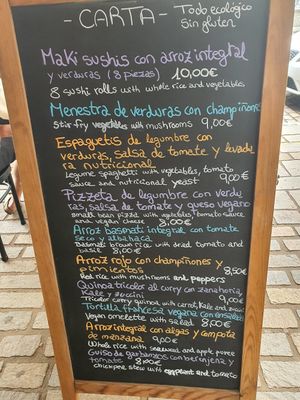 - CARTA -
Todo ecológico
Sin gluten
Maki sushis con arroz integral
y verduras (8 piezas) 10,00€
8 sushi rolls with whole rice and vegetables
Menestra de verduras con champiñones
Stir fry vegetables with mushrooms 9,00€
Espaguetis de legumbre con
verduras, salsa de tomate y levadu
ra nutricional
Legume spaghetti with vegetables, tomato
sauce and nutritional yeast 9,00€
Pizzeta de legumbre con verdu
ras, salsa de tomate y queso vegano
small bean pizza with vegetables, tomato sauce
and vegan cheese 8,00€
Arroz basmati integral con tomate
seco y albahaca
Basmati brown rice with dried tomato and
basil 8,00€
Arroz rojo con champiñones y
pimientos 8,50€
Red rice with mushrooms and peppers
Quinoa tricolor al curry con zanahoria,
Kale y zuccini 9,00€
Tricolor curry quinoa with carrot, Kale and zuccini
Tortilla francesa vegana con ensalada
Vegan omelette with salad 8,00€
Arroz integral con algas y compota
de manzana 9,00€
Whole rice with seaweed and apple puree
Guiso de garbanzos con berenjena y
tomate 8,00€
chickpea stew with eggplant and tomato